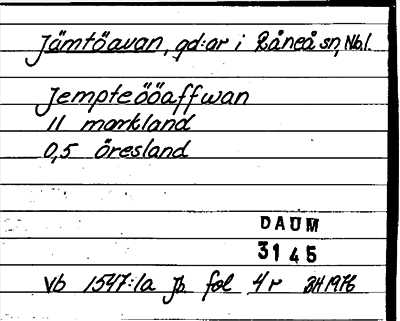 Jämtöavan, gd:ar i Råneå sn, Nbl.
Jempteööaffwan
11 markland
0,5 öresland
DAUM
3145
Vb 1547:1a Jb fol 4r JH 1976